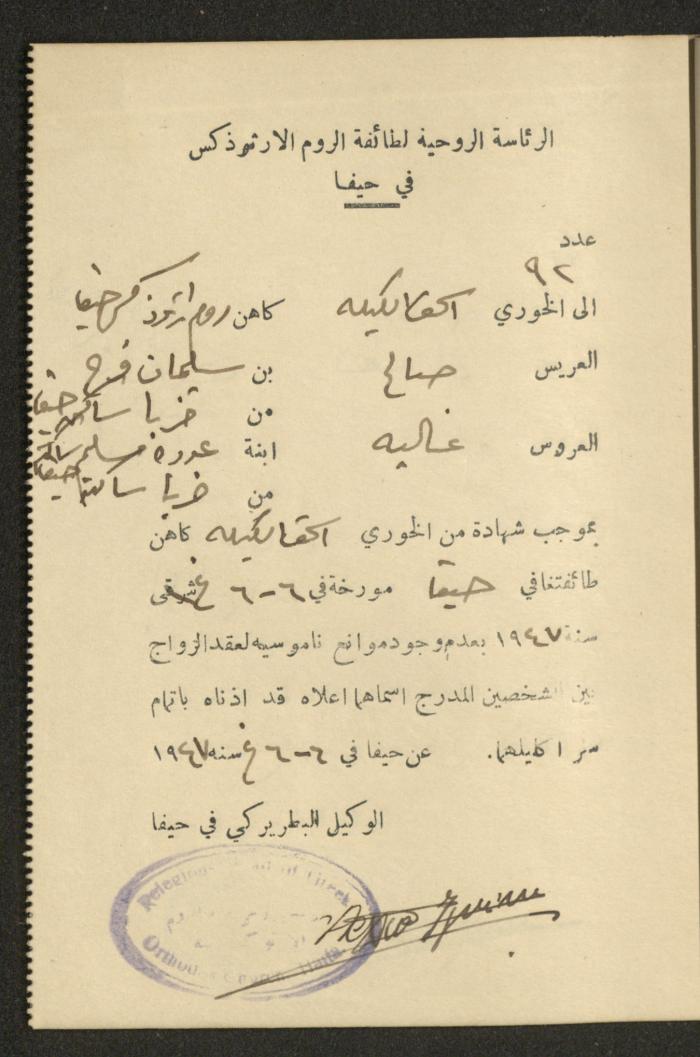 الرئاسة الروحية لطائفة الروم الارثوذكس
في حيفا
عدد
٩٢
الى الخوري كاهن روم ارثوذكس حيفا
العريس صالح بن سليمان فرح
من حيفا
العروس غاليه ابنة
من حيفا
بموجب شهادة من الخوري كاهن
طائفتنا في حيفا مورخة في ٦-٦ غ شرقى
سنة ١٩٤٧ بعدم وجود موانع ناموسيه لعقد الزواج
بين الشخصين المدرج اسماهما اعلاه قد اذناه باتمام
سر اكليلهما. عن حيفا في ٦-٦ غ سنه ١٩٤٧
الوكيل البطريركي في حيفا
Religious Head of Greek
Orthodox Church Haifa